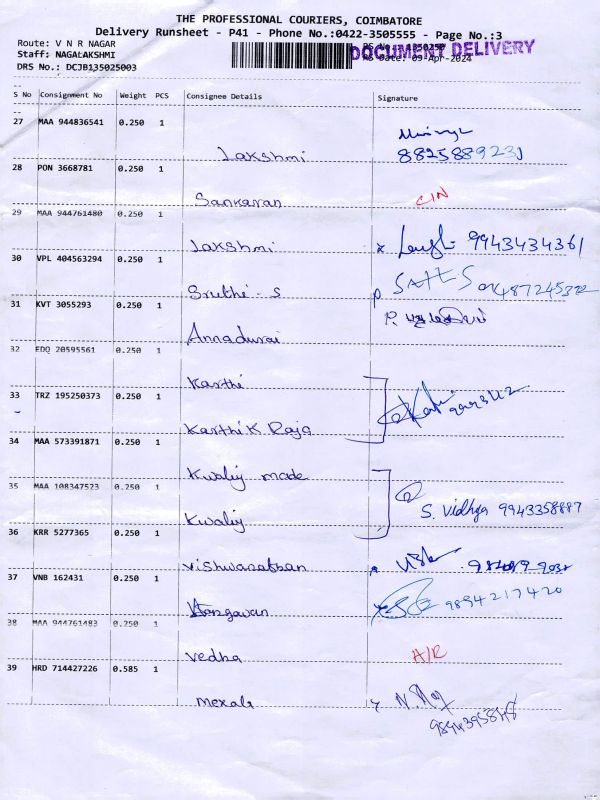 THE PROFESSIONAL COURIERS, COIMBATORE
Delivery Runsheet - P41 - Phone No.:0422-3505555 - Page No.:3
Route: V N R NAGAR
Staff: NAGALAKSHMI
DRS No.: DCJB135025003
RS No.: 1350250
DOCUMENT DELIVERY
RS Date: 09-Apr-2024
S No Consignment No Weight PCS Consignee Details Signature
27 MAA 944836541 0.250 1
Lakshmi 8825889231
28 PON 3668781 0.250 1
Sankaran
29 MAA 944761480 0.250 1
Lakshmi 9943434361
30 VPL 404563294 0.250 1
Sruthi - S
31 KVT 3055293 0.250 1
Annadurai
32 EDQ 20595561 0.250 1
Karthi
33 TRZ 195250373 0.250 1
Karthi K Raja
34 MAA 573391871 0.250 1
Kwaliy made
35 MAA 108347523 0.250 1
Kwaliy S. Vidhya 9943358887
36 KRR 5277365 0.250 1
Vishwanathan
37 VNB 162431 0.250 1
9894217420
38 MAA 944761483 0.250 1
Vedha A/R
39 HRD 714427226 0.585 1